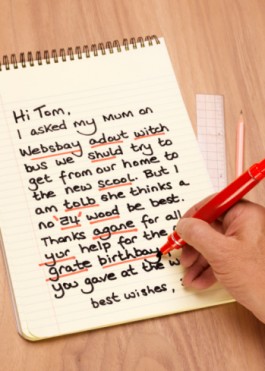 Hi Tom,
I asked my Mum on
Websbay adout witch
bus we shuld try to
get from our home to
the new scool. But I
am tolb she thinks a
no 2y wood be best.
Thanks agane for all
yur help for the
grate birthbay
you gave at the w
best wishes,